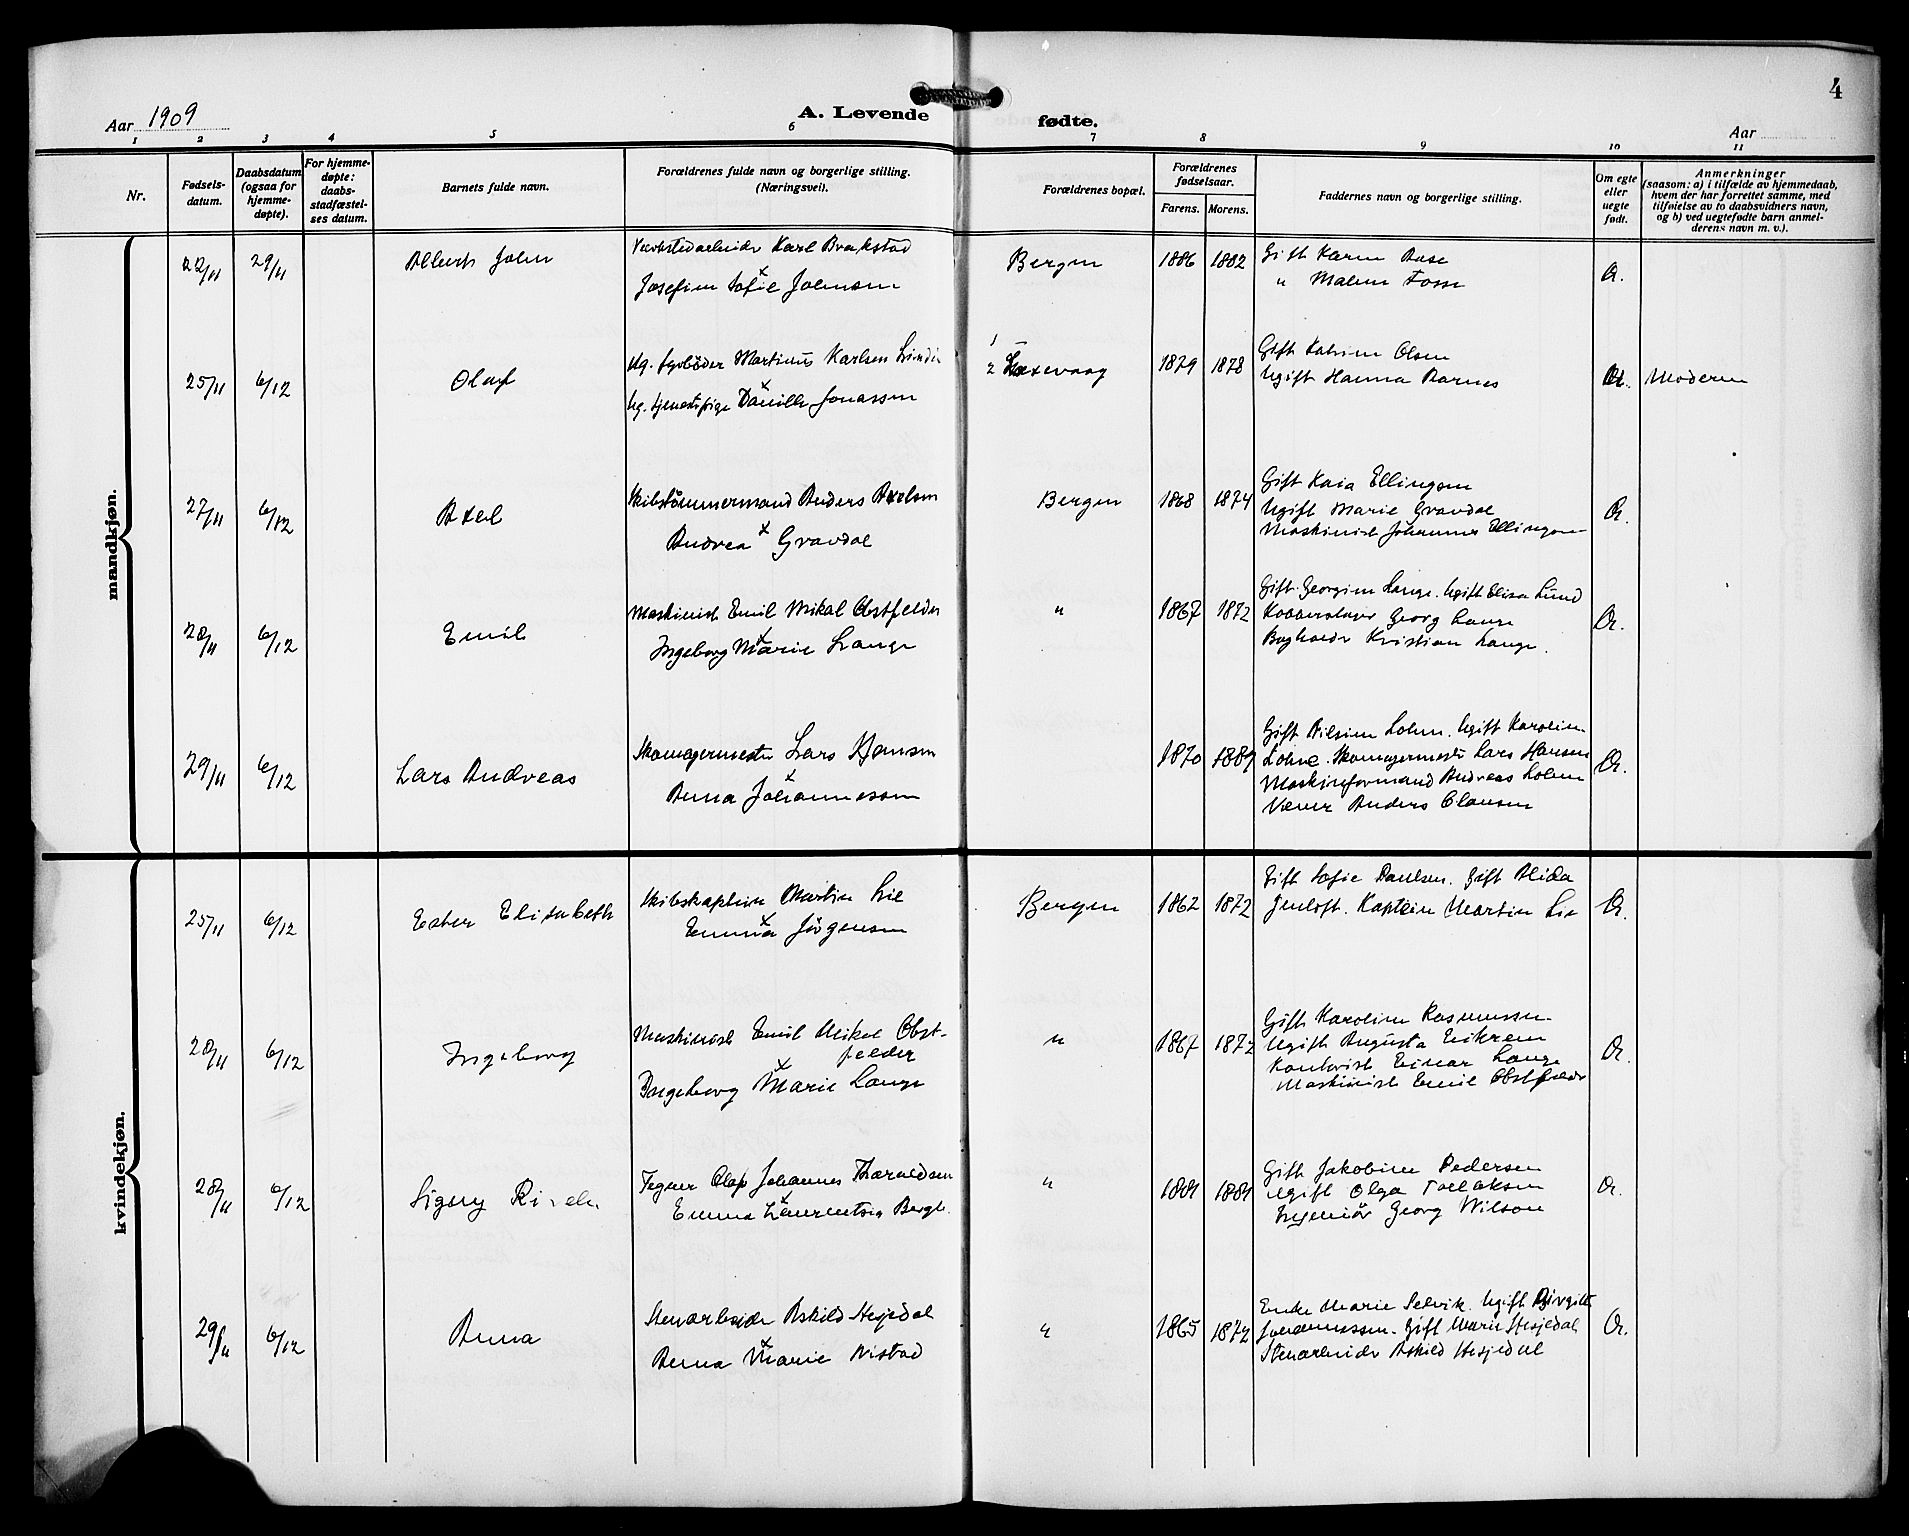 4
Aar 1909
A. Levende
fødte.
Aar
1 2 3 4 5 6 7 8 9 10 11
Nr.
Fødsels-
datum.
Daabsdatum
(ogsaa for
hjemme-
døpte).
For hjemme-
døpte:
daabs-
stadfæstel-
ses datum.
Barnets fulde navn.
Forældrenes fulde navn og borgerlige stilling.
(Næringsvei).
Forældrenes bopæl.
Forældrenes
fødselsaar.
Farens. Morens.
Faddernes navn og borgerlige stilling.
Om egte
eller
uegte
født.
Anmerkninger
(saasom: a) i tilfælde av hjemmedaab,
hvem der har forrettet samme, med
tilføielse av to daabsvidners navn,
og b) ved uegtefødte barn anmel-
derens navn m. v.).
mandkjøn.
22/11 29/11 Albert John
Karl Brakstad
Josefine Sofie Johnsen
Bergen 1886 1882
Gift Karen
" Malene Fosse
25/11 6/12 Olaf
Ug. Martinus Karlsen
Ug. tjenestepige Danille Jonassen
1
2 Laxevaag 1879 1878
Gift Katrine Olsen
Ugift Hanna Barnes
Moderen
27/11 6/12 Axel
Skibstømmermand Anders Axelsen
Andrea Gravdal
Bergen 1868 1874
Gift Kaia Ellingsen
Ugift Marie Gravdal
Maskinist Johannes Ellingsen
28/11 6/12 Emil
Maskinist Emil Mikal Obstfelder
Ingeborg Marie Lange
" 1867 1872
Gift Georgine Lange. Ugift Elisa Lund
Kobberslager Georg Lange
Bogholder Kristian Lange.
29/11 6/12 Lars Andreas
Skomagermester Lars Hansen
Anna Johannessen
1870 1889
Gift Nilsine Lohne. Ugift Karoline
Lohne. Skomagermester Lars Hansen
Maskinformand Andreas Lohne
Væver Anders Clausen
kvindekjøn.
25/11 6/12 Ester Elisabeth
Skibskaptein Martin Lie
Emma Jörgensen
Bergen 1862 1872
Gift Sofie Paulsen. Gift Alida
Kaptein Martin Lie
28/11 6/12 Ingeborg
Maskinist Emil Mikal Obst-
felder
Ingeborg Marie Lange
" 1867 1872
Gift Karoline Rasmussen
Ugift Augusta Eikrem
Kontorist Einar Lange
Maskinist Emil Obstfelder
28/11 6/12 Signy
Tegner Olaf Johannes Haraldsen
Emma Laurentsia
" 1881 1881
Gift Jakobine Pedersen
Ugift Olga Tollaksen
Ingeniör Georg Wilson
29/11 6/12 Anna
Stenarbeider Askild Hesjedal
Anna Marie Nistad
" 1865 1872
Enke Marie Selvik. Ugift Birgitte
Johannessen. Gift Marie Hesjedal
Stenarbeider Askild Hesjedal